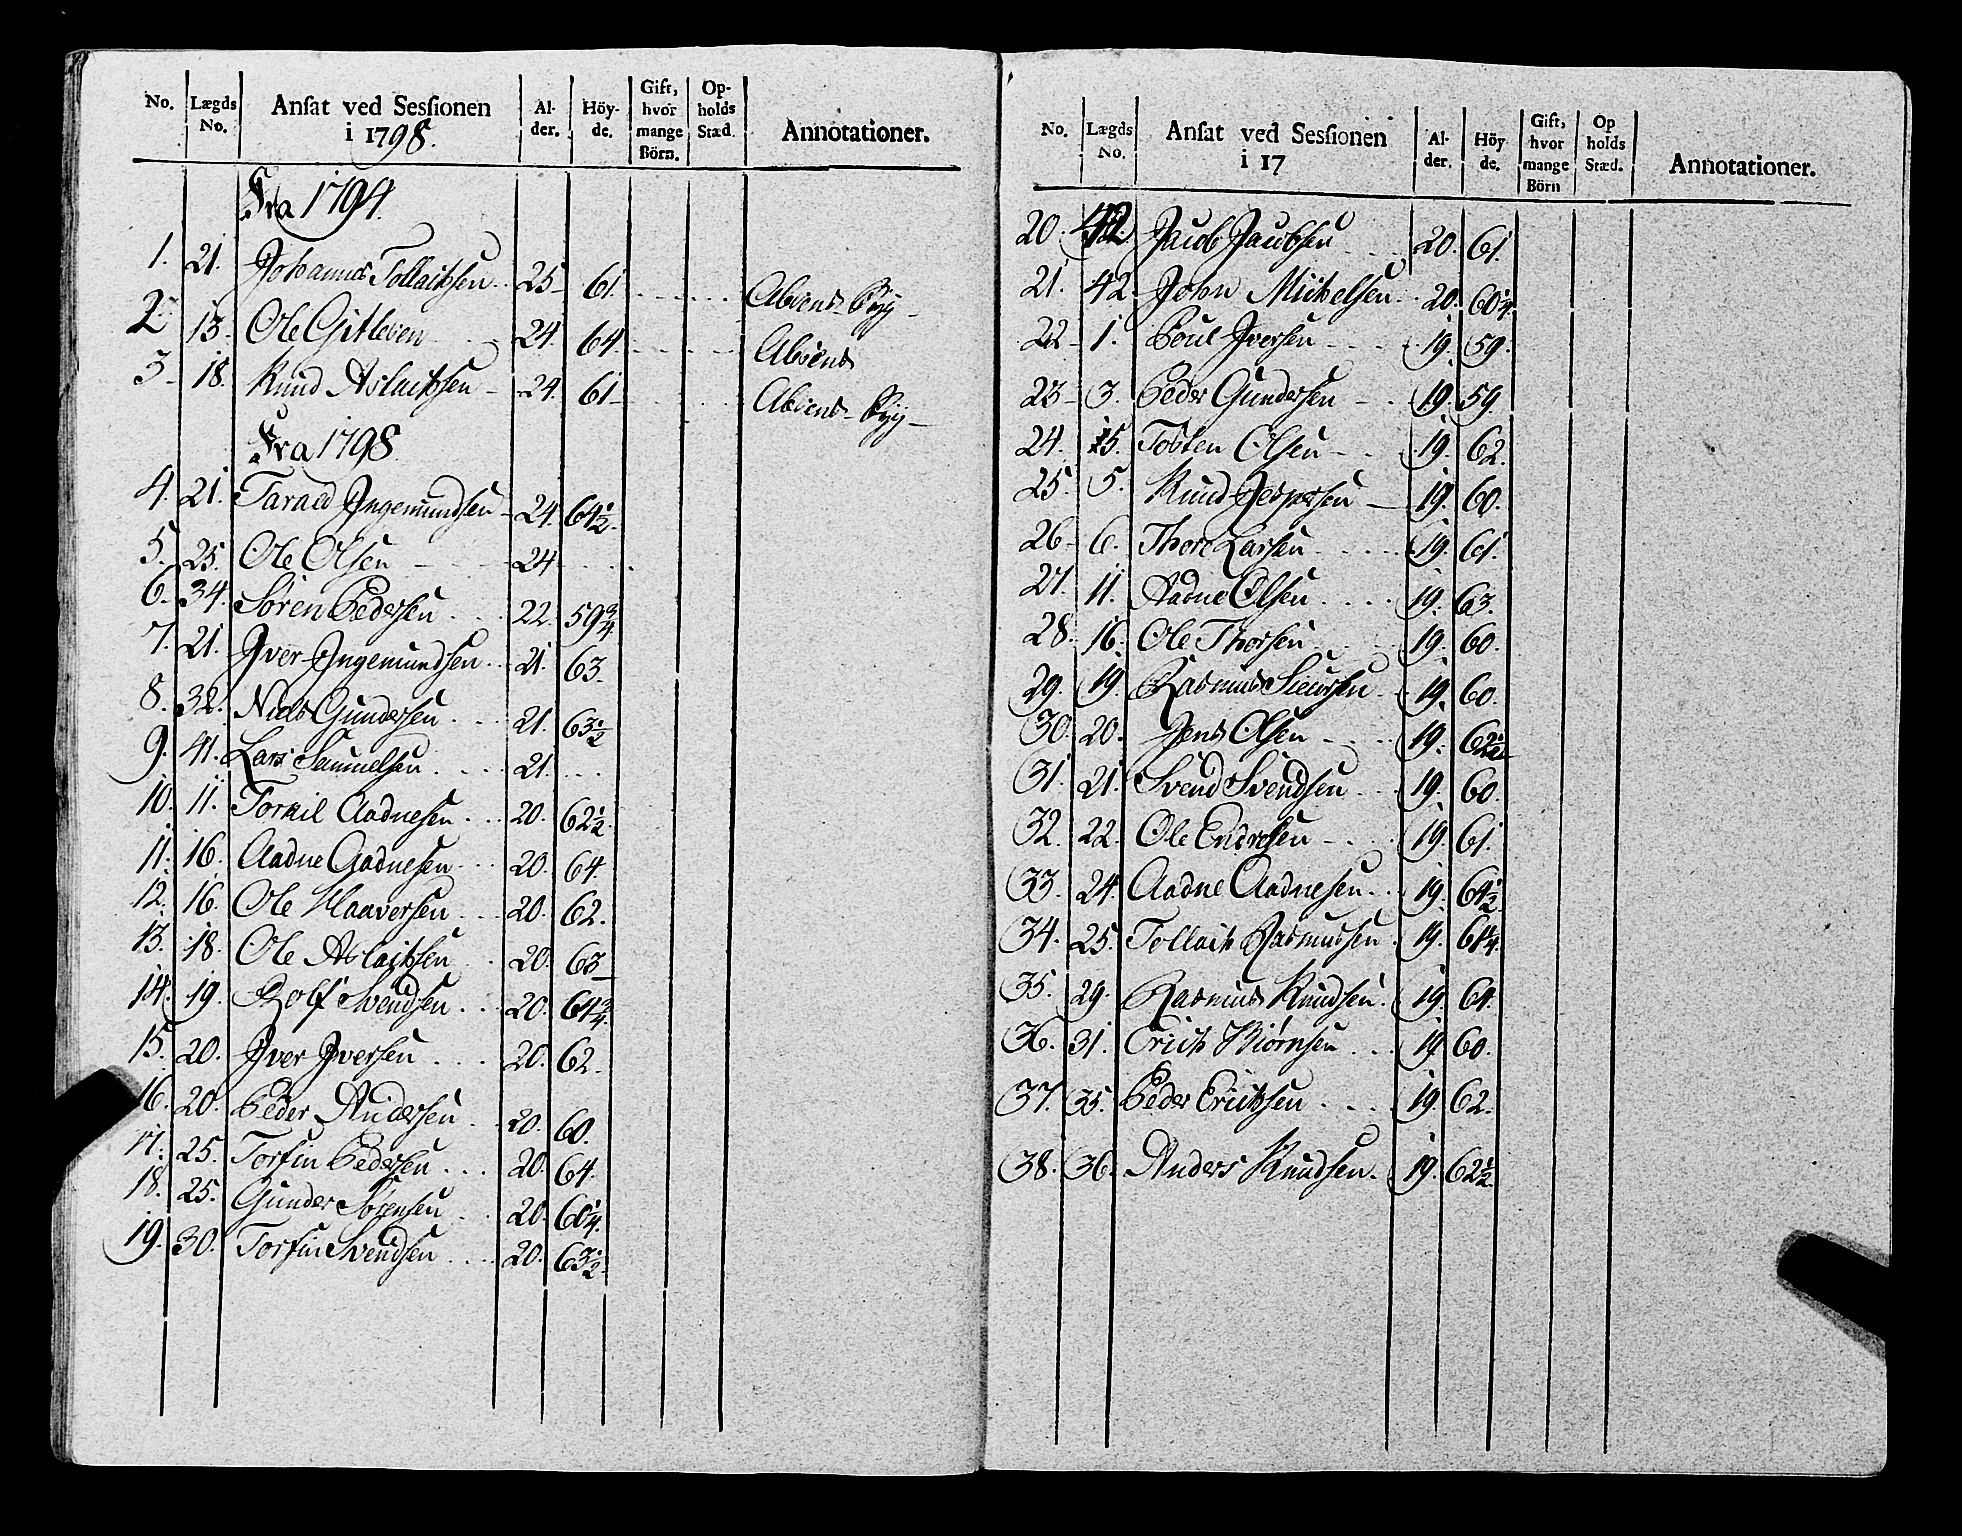 No. Lægds No. Ansat ved Sessionen i 1798. Al-der. Höy-de. Gift, hvor mange Börn. Op-holds Stæd. Annotationer.
Fra 1794.
1. 21. Johannes Tollachsen 25 61. Absens
2 13. Ole Gitlesen 24. 64. Absens
3 18. Knud Aslachsen 24. 61 Absens
Fra 1798
4. 21. Tarald Ingemundsen 24. 64½.
5. 25. Ole Olsen 24
6. 34. Søren Pedersen 22. 59¾
7. 21. Iver Ingemundsen 21. 63.
8. 32. Niels Gundersen 21. 63½
9. 41. Lars Samuelsen 21.
10. 11. Torkil Aadnesen 20. 62½.
11. 16. Aadne Aadnesen 20. 64.
12. 16. Ole Haaversen 20. 62.
13. 18. Ole Aslachsen 20. 63
14. 19. Rolf Svendsen 20. 64¾.
15. 20. Iver Iversen 20. 62.
16. 20. Peder Andersen 20. 60.
17. 25. Torfin Pedersen 20. 64.
18. 25. Gunder Sørensen 20. 60¼.
19. 30. Torfin Svendsen 20. 63½
No. Lægds No. Ansat ved Sessionen i 17 Al-der. Höy de. Gift, hvor mange Börn Op holds Stæd. Annotationer.
20. 42. Jacob Jacobsen 20. 61.
21. 42. John Michelsen 20. 60¼.
22 1. Poul Iversen 19. 59.
23 3. Peder Gundersen 19. 59.
24. 5. Tosten Olsen 19. 62.
25. 5. Knud Jespersen 19. 60.
26 6. Thore Larsen 19. 61.
27. 11. Aadne Olsen 19. 63.
28. 16. Ole Thorsen 19. 60.
29. 19. Rasmus Siversen 19. 60.
30. 20. Jens Olsen 19. 62½
31. 21. Svend Svendsen 19. 60.
32. 22. Ole Endresen 19. 61.
33. 24. Aadne Aadnesen 19. 64½
34. 25. Tollach Rasmussen 19. 61¼.
35. 29. Rasmus Knudsen. 19. 64.
36. 31. Erich Biørnsen 19 60.
37. 35. Peder Erichsen 19. 62.
38. 36. Anders Knudsen. 19. 62½.